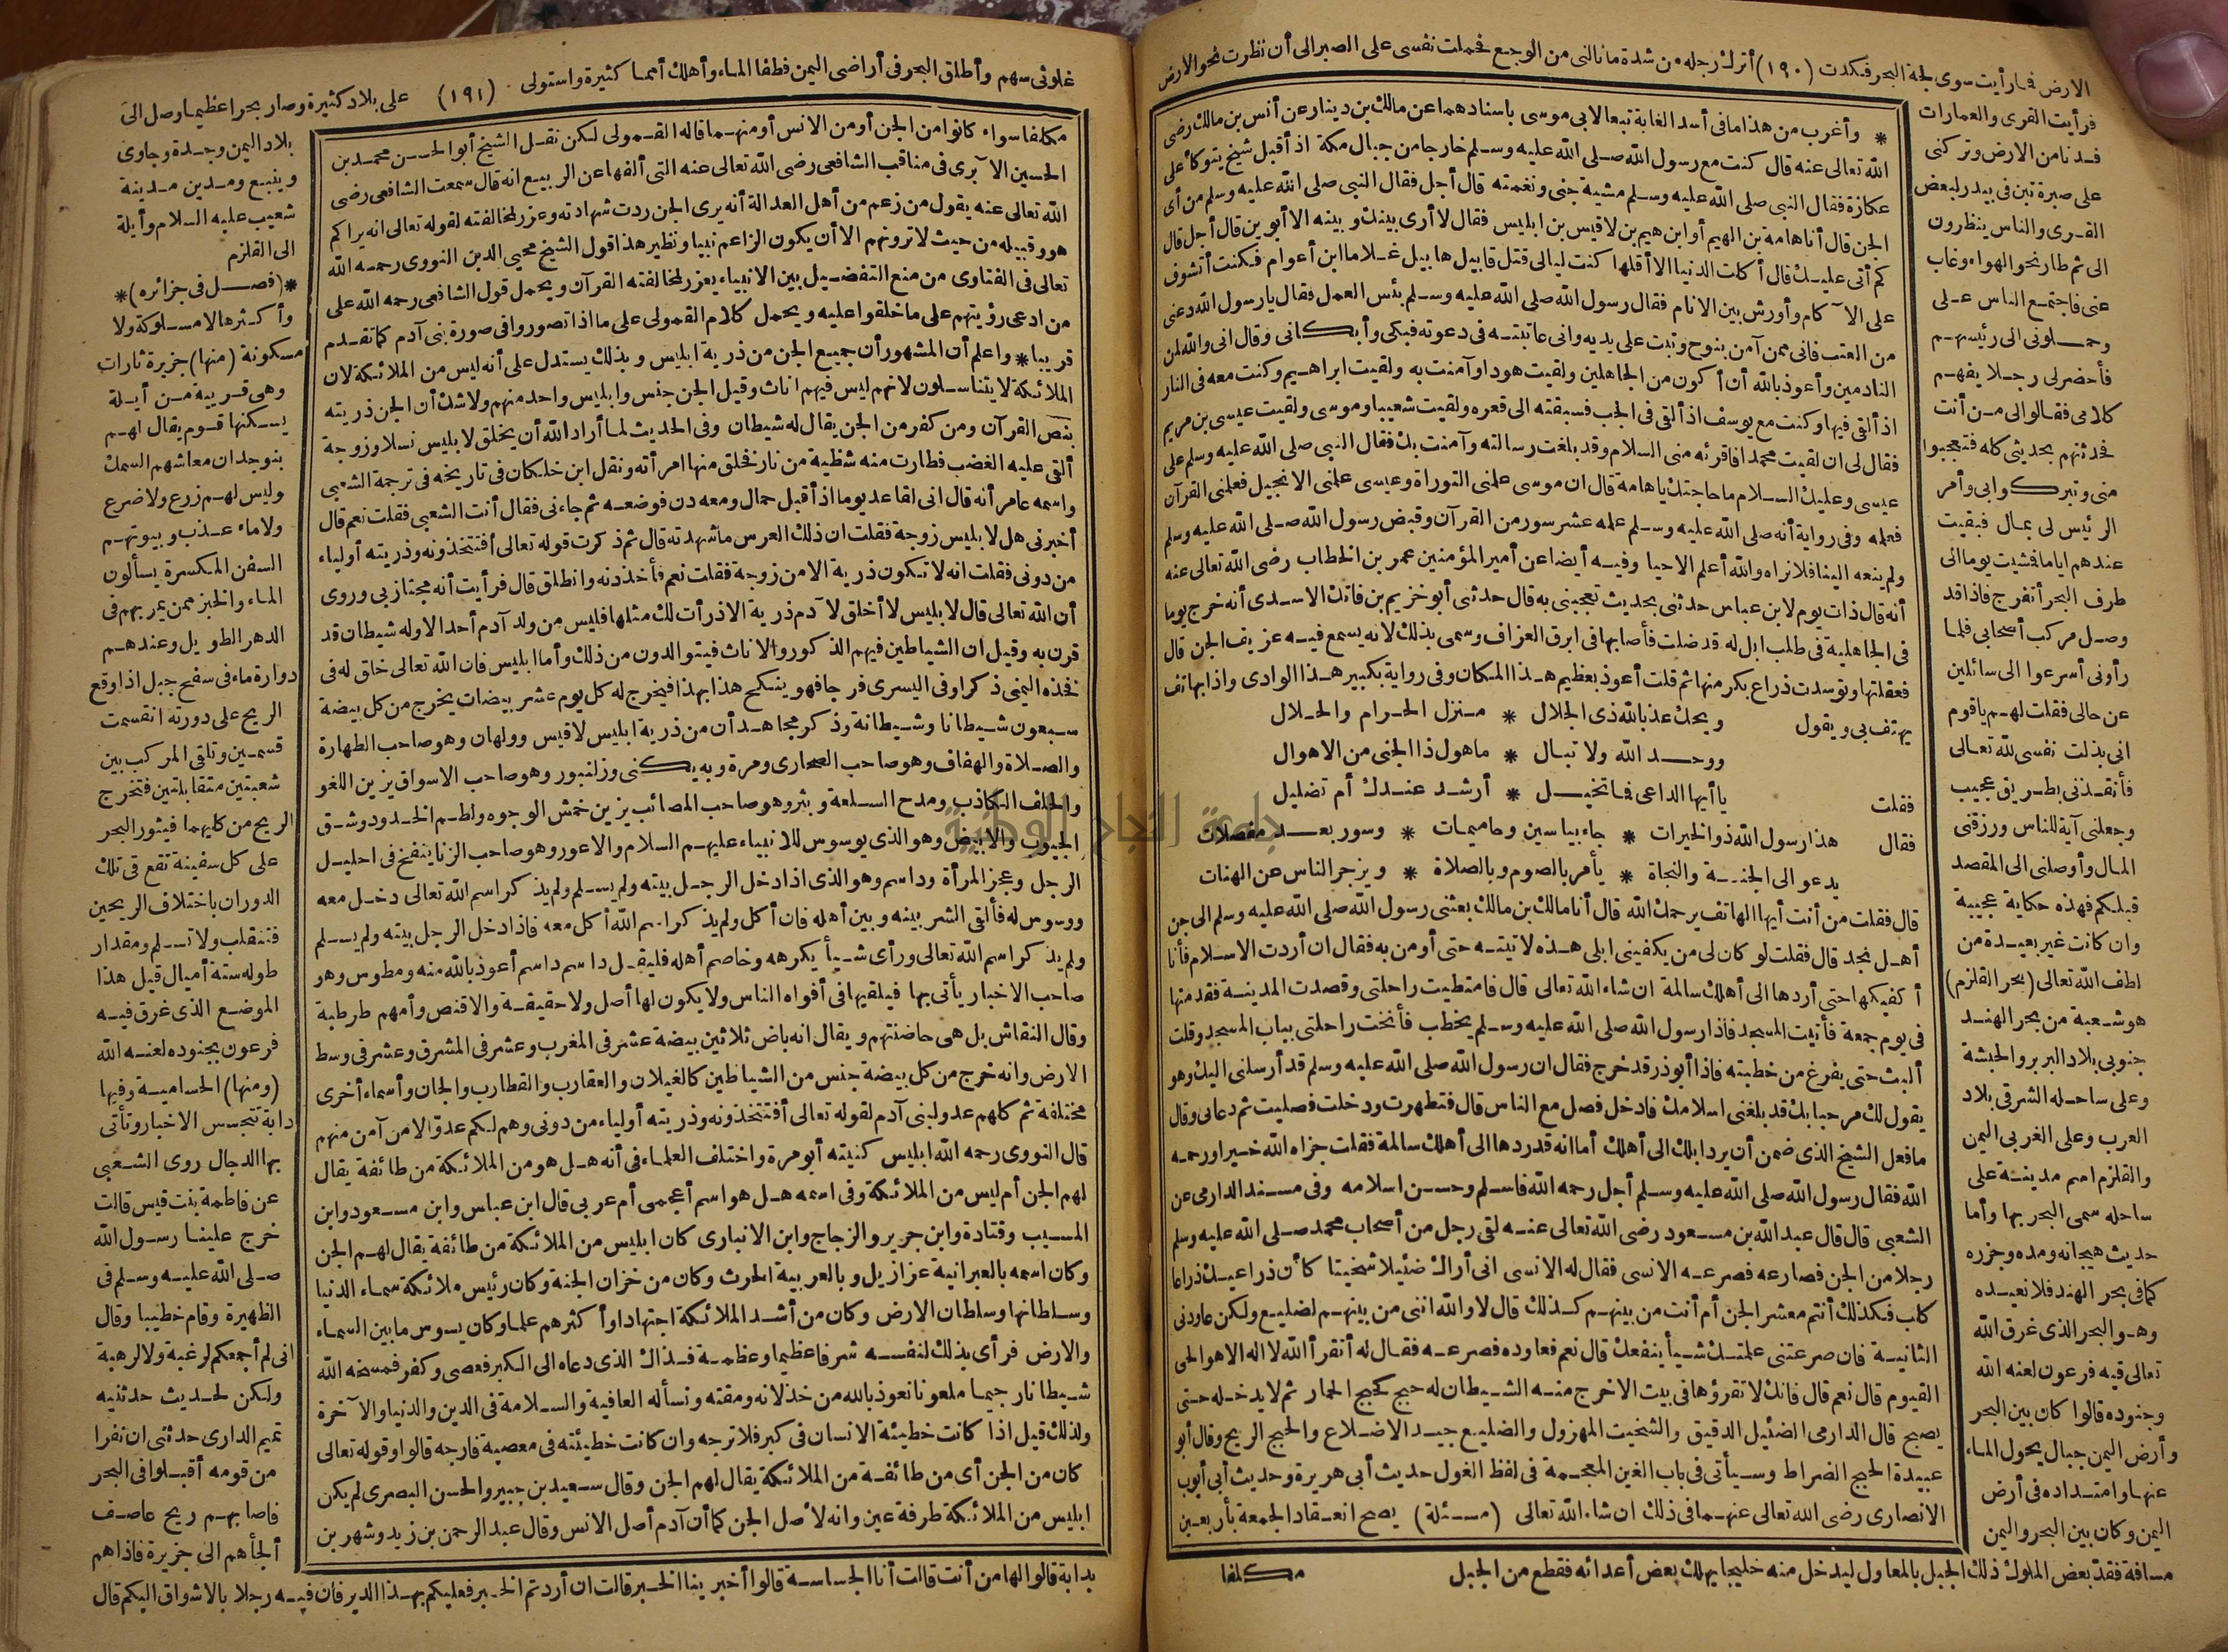 الارض فما رأيت سوى لجة البحر فكدت (١٩٠) أترك رجله من شدة ما نالني من الوجع فحملت نفسي على الصبر الى أن نظرت نحو الارض
فرأيت القرى والعمارات
فدنا من الارض وتركني
على صبرة تبن في بيدر لبعض
القرى والناس ينظرون
الى ثم طار نحو الهواء وغاب
عني فاجتمع الناس على
وحملوني الى رئيسهم
فأحضر لي رجلا يفهم
كلامي فقالوا لي من أنت
فحدثتهم بحديثي كله فتعجبوا
مني وتبركوا بي وأمر
الرئيس لي بمال فبقيت
عندهم أياما فشيت يوما الى
طرف البحر أتفرج فاذا قد
وصل مركب أصحابي فلما
رأوني أسرعوا الى سائلين
عن حالي فقلت لهم يا قوم
اني بذلت نفسي لله تعالى
فأنقذني بطريق عجيب
وجعلني آية للناس ورزقني
المال وأوصلني الى المقصد
قبلكم فهذه حكاية عجيبة
وان كانت غير بعيدة من
لطف الله تعالى (بحر القلزم)
هو شعبة من بحر الهند
جنوبي بلاد البربر والحبشة
وعلى ساحله الشرقي بلاد
العرب وعلى الغربي اليمن
والقلزم اسم مدينة على
ساحله سمى البحر بها وأما
حديث هيجانه ومده وجزره
كما في بحر الهند فلا نعيده
وهو البحر الذي غرق الله
تعالى فيه فرعون لعنه الله
وجنوده قالوا كان بين البحر
وأرض اليمن جبال يحول الماء
عنها وامتداده في أرض
اليمن وكان بين البحر واليمن
مسافة فقد بعض الملوك ذلك الجبل بالمعاول ليدخل منه خليجا يهلك بعض أعدائه فقطع من الجبل
* وأغرب من هذا ما في أسد الغابة تبعا لابي موسى باسنادهما عن مالك بن دينار عن أنس بن مالك رضى
الله تعالى عنه قال كنت مع رسول الله صلى الله عليه وسلم خارجا من جبال مكة اذ أقبل شيخ يتوكأ على
عكازة فقال النبي صلى الله عليه وسلم مشية جني ونغمته قال أجل فقال النبي صلى الله عليه وسلم من أي
الجن قال أنا هامة بن الهيم أو ابن هيم بن لاقيس بن ابليس فقال لا أرى بينك وبينه الا أبوين قال أجل قال
كم أتى عليك قال أكلت الدنيا الا أقلها كنت ليالي قتل قابيل هابيل غلاما ابن أعوام فكنت أتشوف
على الآكام وأورش بين الانام فقال رسول الله صلى الله عليه وسلم بئس العمل فقال يا رسول الله دعني
من العتب فاني ممن آمن بنوح وتبت على يديه واني عاتبته في دعوته فبكى وأبكاني وقال اني والله لمن
النادمين وأعوذ بالله أن أكون من الجاهلين ولقيت هودا وآمنت به ولقيت ابراهيم وكنت معه في النار
اذ ألقى فيها وكنت مع يوسف اذ ألقى في الجب فسبقته الى قعره ولقيت شعيبا وموسى ولقيت عيسى بن مريم
فقال لي ان لقيت محمدا فاقرئه مني السلام وقد بلغت رسالته وآمنت بك فقال النبي صلى الله عليه وسلم على
عيسى وعليك السلام ما حاجتك يا هامة قال ان موسى علمني التوراة وعيسى علمني الانجيل فعلمني القرآن
فعلمه وفي رواية أنه صلى الله عليه وسلم علمه عشر سور من القرآن وقبض رسول الله صلى الله عليه وسلم
ولم ينعه الينا فلا نراه والله أعلم الا حيا وفيه أيضا عن أمير المؤمنين عمر بن الخطاب رضى الله تعالى عنه
أنه قال ذات يوم لابن عباس حدثني بحديث تعجبني به قال حدثني أبو خزيم بن فاتك الاسدي أنه خرج يوما
في الجاهلية في طلب ابل له قد ضلت فأصابها في ابرق العزاف وسمى بذلك لانه يسمع فيه عزيف الجن قال
فعقلتها وتوسدت ذراع بكر منها ثم قلت أعوذ بعظيم هذا المكان وفي رواية بكبير هذا الوادي واذا بهاتف
يهتف بي ويقول ويحك عذ بالله ذي الجلال * منزل الحرام والحلال
ووحد الله ولا تبال * ما هول ذا الجني من الاهوال
فقلت يا أيها الداعي فما تخيل * أرشد عندك أم تضليل
فقال هذا رسول الله ذو الخيرات * جاء بياسين وحاميمات * وسور بعد مفصلات
يدعو الى الجنة والنجاة * يأمر بالصوم وبالصلاة * ويزجر الناس عن الهنات
قال فقلت من أنت أيها الهاتف يرحمك الله قال أنا مالك بن مالك بعثني رسول الله صلى الله عليه وسلم الى جن
أهل نجد قال فقلت لو كان لي من يكفيني ابلي هذه لاتيته حتى أومن به فقال ان أردت الاسلام فأنا
أكفيكها حتى أردها الى أهلك سالمة ان شاء الله تعالى قال فامتطيت راحلتي وقصدت المدينة فقدمتها
في يوم جمعة فأتيت المسجد فاذا رسول الله صلى الله عليه وسلم يخطب فأنخت راحلتي بباب المسجد وقلت
ألبث حتى يفرغ من خطبته فاذا أبو ذر قد خرج فقال ان رسول الله صلى الله عليه وسلم قد أرسلني اليك وهو
يقول لك مرحبا بك قد بلغني اسلامك فادخل فصل مع الناس قال فتطهرت ودخلت فصليت ثم دعاني وقال
ما فعل الشيخ الذي ضمن أن يرد ابلك الى أهلك أما انه قد ردها الى أهلك سالمة فقلت جزاه الله خيرا ورحمه
الله فقال رسول الله صلى الله عليه وسلم أجل رحمه الله فاسلم وحسن اسلامه وفي مسند الدارمي عن
الشعبي قال قال عبد الله بن مسعود رضى الله تعالى عنه لقى رجل من أصحاب محمد صلى الله عليه وسلم
رجلا من الجن فصارعه فصرعه الانسى فقال له الانسى اني أراك ضئيلا شخيتا كأن ذراعيك ذراعا
كلب فكذلك أنتم معشر الجن أم أنت من بينهم كذلك قال لا والله انني من بينهم لضليع ولكن عاودني
الثانية فان صرعتني علمتك شيأ ينفعك قال نعم فعاوده فصرعه فقال له أتقرأ الله لا اله الا هو الحي
القيوم قال نعم قال فانك لا تقرؤها في بيت الا خرج منه الشيطان له حبج كحبج الحمار ثم لا يدخله حتى
يصبح قال الدارمي الضئيل الدقيق والشخيت المهزول والضليع جيد الاضلاع والحبج الريح وقال أبو
عبيدة الحبج الضراط وسيأتي في باب الغين المعجمة في لفظ الغول حديث أبي هريرة وحديث أبي أيوب
الانصاري رضى الله تعالى عنهما في ذلك ان شاء الله تعالى (مسئلة) يصح انعقاد الجمعة بأربعين
مكلفا
غلوتي سهم وأطلق البحر في أراضي اليمن فطفا الماء وأهلك أمما كثيرة واستولى (١٩١) على بلاد كثيرة وصار بحرا عظيما وصل الى
مكلفا سواء كانوا من الجن أو من الانس أو منهما قاله القمولي لكن نقل الشيخ أبو الحسن محمد بن
الحسين الآبري في مناقب الشافعي رضى الله تعالى عنه التي ألفها عن الربيع انه قال سمعت الشافعي رضى
الله تعالى عنه يقول من زعم من أهل العدالة أنه يرى الجن ردت شهادته وعزر لمخالفته لقوله تعالى انه يراكم
هو وقبيله من حيث لا ترونهم الا أن يكون الزاعم نبيا ونظير هذا قول الشيخ محيي الدين النووى رحمه الله
تعالى في الفتاوى من منع التفضيل بين الانبياء يعزر لمخالفته القرآن ويحمل قول الشافعي رحمه الله على
من ادعى رؤيتهم على ما خلقوا عليه ويحمل كلام القمولي على ما اذا تصوروا في صورة بني آدم كما تقدم
قريبا * واعلم أن المشهور أن جميع الجن من ذرية ابليس وبذلك يستدل على أنه ليس من الملائكة لان
الملائكة لا يتناسلون لانهم ليس فيهم اناث وقيل الجن جنس وابليس واحد منهم ولا شك أن الجن ذريته
بنص القرآن ومن كفر من الجن يقال له شيطان وفي الحديث لما أراد الله أن يخلق لابليس نسلا وزوجة
ألقى عليه الغضب فطارت منه شظية من نار فخلق منها امرأته ونقل ابن خلكان في تاريخه في ترجمة الشعبي
واسمه عامر أنه قال اني لقاعد يوما اذ أقبل حمال ومعه دن فوضعه ثم جاءني فقال أنت الشعبي فقلت نعم قال
أخبرني هل لابليس زوجة فقلت ان ذلك العرس ما شهدته قال ثم ذكرت قوله تعالى أفتتخذونه وذريته أولياء
من دوني فقلت انه لا تكون ذرية الا من زوجة فقلت نعم فأخذ دنه وانطلق قال فرأيت أنه مجتاز بي وروى
أن الله تعالى قال لابليس لا أخلق لآدم ذرية الا ذرأت لك مثلها فليس من ولد آدم أحد الا وله شيطان قد
قرن به وقيل ان الشياطين فيهم الذكور والاناث فيتوالدون من ذلك وأما ابليس فان الله تعالى خلق له في
فخذه اليمنى ذكرا وفي اليسرى فرجا فهو ينكح هذا بهذا فيخرج له كل يوم عشر بيضات يخرج من كل بيضة
سبعون شيطانا وشيطانة وذكر مجاهد أن من ذرية ابليس لاقيس وولهان وهو صاحب الطهارة
والصلاة والهفاف وهو صاحب الصحارى ومرة وبه يكنى وزلنبور وهو صاحب الاسواق يزين اللغو
والحلف الكاذب ومدح السلعة وبثر وهو صاحب المصائب يزين خمش الوجوه ولطم الخدود وشق
الجيوب والابيض وهو الذي يوسوس للانبياء عليهم السلام والاعور وهو صاحب الزنا ينفخ في احليل
الرجل وعجز المرأة وداسم وهو الذي اذا دخل الرجل بيته ولم يسلم ولم يذكر اسم الله تعالى دخل معه
ووسوس له فألقى الشر بينه وبين أهله فان أكل ولم يذكر اسم الله أكل معه فاذا دخل الرجل بيته ولم يسلم
ولم يذكر اسم الله تعالى ورأى شيأ يكرهه وخاصم أهله فليقل داسم داسم أعوذ بالله منه ومطوس وهو
صاحب الاخبار يأتي بها فيلقيها في أفواه الناس ولا يكون لها أصل ولا حقيقة والاقنص وأمهم طرطبة
وقال النقاش بل هي حاضنتهم ويقال انه باض ثلاثين بيضة عشر في المغرب وعشر في المشرق وعشر في وسط
الارض وانه خرج من كل بيضة جنس من الشياطين كالغيلان والعقارب والقطارب والجان وأسماء أخرى
مختلفة ثم كلهم عدو لبني آدم لقوله تعالى أفتتخذونه وذريته أولياء من دوني وهم لكم عدو الا من آمن منهم
قال النووى رحمه الله ابليس كنيته أبو مرة واختلف العلماء في أنه هل هو من الملائكة من طائفة يقال
لهم الجن أم ليس من الملائكة وفي اسمه هل هو اسم أعجمي أم عربي قال ابن عباس وابن مسعود وابن
المسيب وقتادة وابن جرير والزجاج وابن الانباري كان ابليس من الملائكة من طائفة يقال لهم الجن
وكان اسمه بالعبرانية عزازيل وبالعربية الحرث وكان من خزان الجنة وكان رئيس ملائكة سماء الدنيا
وسلطانها وسلطان الارض وكان من أشد الملائكة اجتهادا وأكثرهم علما وكان يسوس ما بين السماء
والارض فرأى بذلك لنفسه شرفا عظيما وعظمة فذاك الذي دعاه الى الكبر فعصى وكفر فمسخه الله
شيطانا رجيما ملعونا نعوذ بالله من خذلانه ومقته ونسأله العافية والسلامة في الدين والدنيا والآخرة
ولذلك قيل اذا كانت خطيئة الانسان في كبر فلا ترجه وان كانت خطيئته في معصية فارجه قالوا وقوله تعالى
كان من الجن أي من طائفة من الملائكة يقال لهم الجن وقال سعيد بن جبير والحسن البصري لم يكن
ابليس من الملائكة طرفة عين وانه لأصل الجن كما أن آدم أصل الانس وقال عبد الرحمن بن زيد وشهر بن
بلاد اليمن وجدة وجاوى
وينبع ومدين مدينة
شعيب عليه السلام وأيلة
الى القلزم
*(فصل في جزائره)*
وأكثرها لا مسلوكة ولا
مسكونة (منها) جزيرة تارات
وهي قريبة من أيلة
يسكنها قوم يقال لهم
بنو جدان معاشهم السمك
وليس لهم زرع ولا ضرع
ولا ماء عذب وبيوتهم
السفن المكسرة يسألون
الماء والخبز ممن يمر بهم في
الدهر الطويل وعندهم
دوارة ماء في سفح جبل اذا وقع
الريح على دورته انقسمت
قسمين وتلقى المركب بين
شعبتين متقابلتين فتخرج
الريح من كليهما فيثور البحر
على كل سفينة تقع في تلك
الدوران باختلاف الريحين
فتنقلب ولا تسلم ومقدار
طوله ستة أميال قيل هذا
الموضع الذي غرق فيه
فرعون بجنوده لعنه الله
(ومنها) الحساميسة وفيها
دابة تتجسس الاخبار وتأتى
بها الدجال روى الشعبي
عن فاطمة بنت قيس قالت
خرج علينا رسول الله
صلى الله عليه وسلم في
الظهيرة وقام خطيبا وقال
اني لم أجمعكم لرغبة ولا لرهبة
ولكن لحديث حدثنيه
تميم الداري حدثني ان نفرا
من قومه أقبلوا في البحر
فاصابهم ريح عاصف
ألجأهم الى جزيرة فاذا هم
بدابة قالوا لها من أنت قالت أنا الجساسة قالوا أخبرينا الخبر قالت ان أردتم الخبر فعليكم بهذا الدير فان فيه رجلا بالاشواق اليكم قال
جامعة النجاح الوطنية